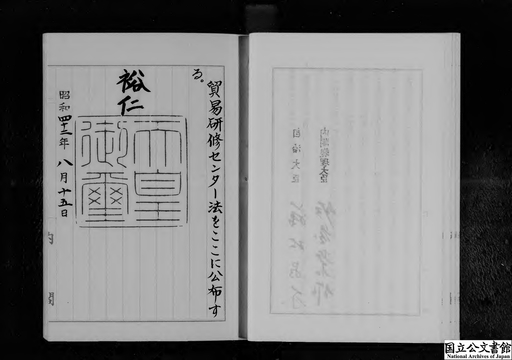 貿易研修センター法をここに公布す
る。
裕仁
天皇
御璽
昭和四十二年 八月十五日
内閣
内閣総理大臣
国立公文書館
National Archives of Japan